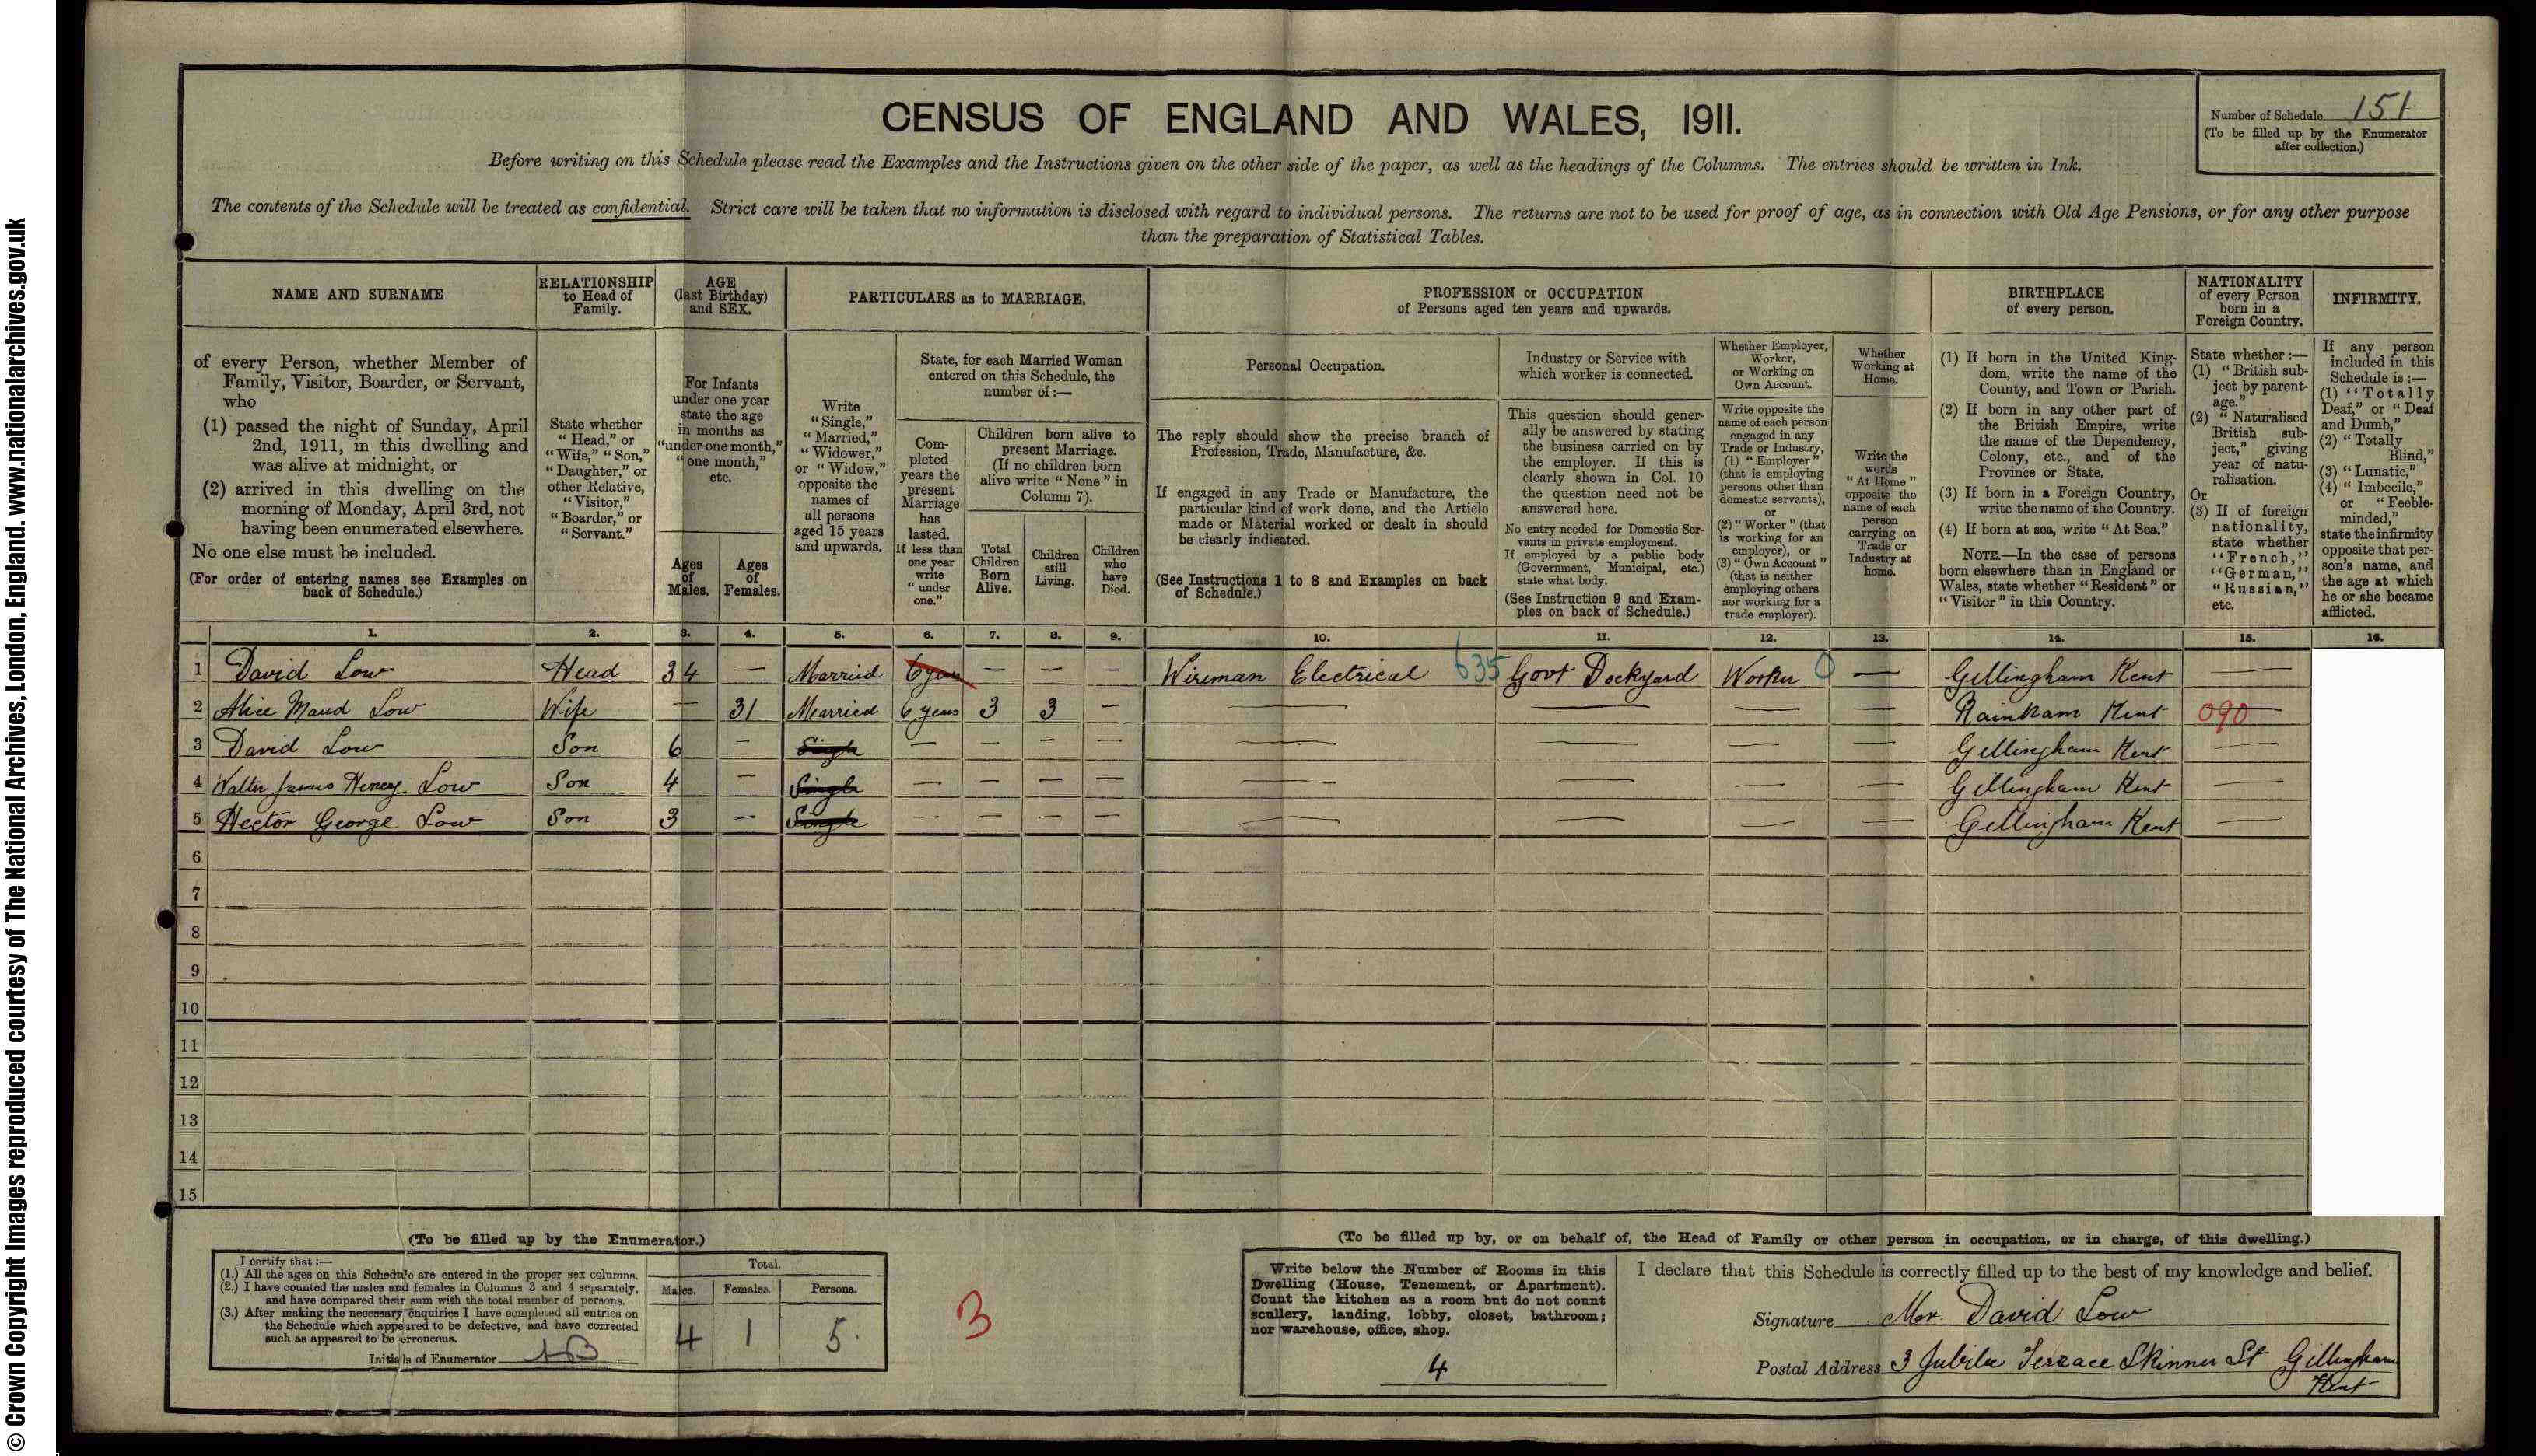 © Crown Copyright Images reproduced courtesy of The National Archives, London, England. www.nationalarchives.gov.uk
CENSUS OF ENGLAND AND WALES, 1911.
Number of Schedule 151
(To be filled up by the Enumerator
after collection.)
Before writing on this Schedule please read the Examples and the Instructions given on the other side of the paper, as well as the headings of the Columns. The entries should be written in Ink.
The contents of the Schedule will be treated as confidential. Strict care will be taken that no information is disclosed with regard to individual persons. The returns are not to be used for proof of age, as in connection with Old Age Pensions, or for any other purpose
than the preparation of Statistical Tables.
NAME AND SURNAME
of every Person, whether Member of
Family, Visitor, Boarder, or Servant,
who
(1) passed the night of Sunday, April
2nd, 1911, in this dwelling and
was alive at midnight, or
(2) arrived in this dwelling on the
morning of Monday, April 3rd, not
having been enumerated elsewhere.
No one else must be included.
(For order of entering names see Examples on
back of Schedule.)
RELATIONSHIP
to Head of
Family.
State whether
"Head," or
"Wife," "Son,"
"Daughter," or
other Relative,
"Visitor,"
"Boarder," or
"Servant."
AGE
(last Birthday)
and SEX.
For Infants
under one year
state the age
in months as
"under one month,"
"one month,"
etc.
Ages
of
Males.
Ages
of
Females.
PARTICULARS as to MARRIAGE.
Write
"Single,"
"Married,"
"Widower,"
or "Widow,"
opposite the
names of
all persons
aged 15 years
and upwards.
State, for each Married Woman
entered on this Schedule, the
number of:—
Com-
pleted
years the
present
Marriage
has
lasted.
If less than
one year
write
"under
one."
Children born alive to
present Marriage.
(If no children born
alive write "None" in
Column 7).
Total
Children
Born
Alive.
Children
still
Living.
Children
who
have
Died.
PROFESSION or OCCUPATION
of Persons aged ten years and upwards.
Personal Occupation.
The reply should show the precise branch of
Profession, Trade, Manufacture, &c.
If engaged in any Trade or Manufacture, the
particular kind of work done, and the Article
made or Material worked or dealt in should
be clearly indicated.
(See Instructions 1 to 8 and Examples on back
of Schedule.)
Industry or Service with
which worker is connected.
This question should gener-
ally be answered by stating
the business carried on by
the employer. If this is
clearly shown in Col. 10
the question need not be
answered here.
No entry needed for Domestic Ser-
vants in private employment.
If employed by a public body
(Government, Municipal, etc.)
state what body.
(See Instruction 9 and Exam-
ples on back of Schedule.)
Whether Employer,
Worker,
or Working on
Own Account.
Write opposite the
name of each person
engaged in any
Trade or Industry,
(1) "Employer"
(that is employing
persons other than
domestic servants),
or
(2) "Worker" (that
is working for an
employer), or
(3) "Own Account"
(that is neither
employing others
nor working for a
trade employer).
Whether
Working at
Home.
Write the
words
"At Home"
opposite the
name of each
person
carrying on
Trade or
Industry at
home.
BIRTHPLACE
of every person.
(1) If born in the United King-
dom, write the name of the
County, and Town or Parish.
(2) If born in any other part of
the British Empire, write
the name of the Dependency,
Colony, etc., and of the
Province or State.
(3) If born in a Foreign Country,
write the name of the Country.
(4) If born at sea, write "At Sea."
NOTE.—In the case of persons
born elsewhere than in England or
Wales, state whether "Resident" or
"Visitor" in this Country.
NATIONALITY
of every Person
born in a
Foreign Country.
State whether:—
(1) "British sub-
ject by parent-
age."
(2) "Naturalised
British sub-
ject," giving
year of natu-
ralisation.
Or
(3) If of foreign
nationality,
state whether
"French,"
"German,"
"Russian,"
etc.
INFIRMITY.
If any person
included in this
Schedule is:—
(1) "Totally
Deaf," or "Deaf
and Dumb,"
(2) "Totally
Blind,"
(3) "Lunatic,"
(4) "Imbecile,"
or "Feeble-
minded,"
state the infirmity
opposite that per-
son's name, and
the age at which
he or she became
afflicted.
1. 2. 3. 4. 5. 6. 7. 8. 9. 10. 11. 12. 13. 14. 15. 16.
1 David Low Head 34 — Married 6 years — — — Wireman Electrical 635 Govt Dockyard Worker 0 — Gillingham Kent —
2 Alice Maud Low Wife — 31 Married 6 years 3 3 — — — — — Rainham Kent 090 —
3 David Low Son 6 — Single — — — — — — — — Gillingham Kent —
4 Walter James Henry Low Son 4 — Single — — — — — — — — Gillingham Kent —
5 Hector George Low Son 3 — Single — — — — — — — — Gillingham Kent —
6
7
8
9
10
11
12
13
14
15
(To be filled up by the Enumerator.)
I certify that:—
(1.) All the ages on this Schedule are entered in the proper sex columns.
(2.) I have counted the males and females in Columns 3 and 4 separately,
and have compared their sum with the total number of persons.
(3.) After making the necessary enquiries I have completed all entries on
the Schedule which appeared to be defective, and have corrected
such as appeared to be erroneous.
Initials of Enumerator
Total.
Males. Females. Persons.
4 1 5.
3
(To be filled up by, or on behalf of, the Head of Family or other person in occupation, or in charge, of this dwelling.)
Write below the Number of Rooms in this
Dwelling (House, Tenement, or Apartment).
Count the kitchen as a room but do not count
scullery, landing, lobby, closet, bathroom;
nor warehouse, office, shop.
4
I declare that this Schedule is correctly filled up to the best of my knowledge and belief.
Signature Mr. David Low
Postal Address 3 Jubilee Terrace Skinner St Gillingham
Kent